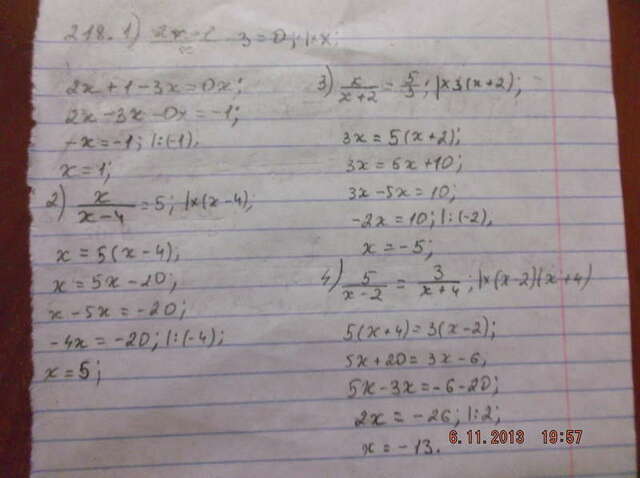 218. 1) (2x+1)/x - 3 = 0; |·x;
2x + 1 - 3x = 0x;
2x - 3x - 0x = -1;
-x = -1; |:(-1),
x = 1;
2) x/(x-4) = 5; |×(x-4);
x = 5(x-4);
x = 5x - 20;
x - 5x = -20;
-4x = -20; |:(-4);
x = 5;
3) x/(x+2) = 5/3; |×3(x+2);
3x = 5(x+2);
3x = 5x + 10;
3x - 5x = 10;
-2x = 10; |:(-2),
x = -5;
4) 5/(x-2) = 3/(x+4); |×(x-2)(x+4)
5(x+4) = 3(x-2);
5x + 20 = 3x - 6,
5x - 3x = -6 - 20;
2x = -26; |:2;
x = -13.
6.11.2013 19:57